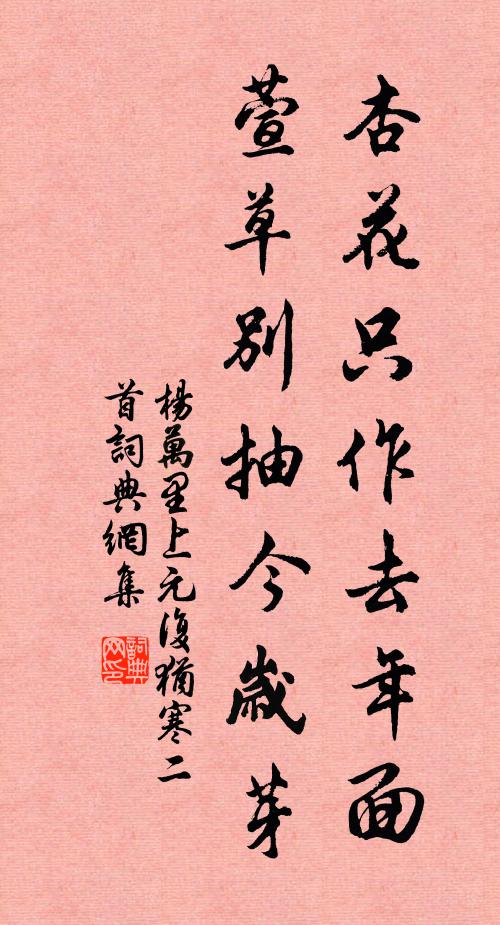 杏花只作去年面
萱草別抽今歲芽
楊萬里上元復猶寒二
首詞典網集
詞典
网印